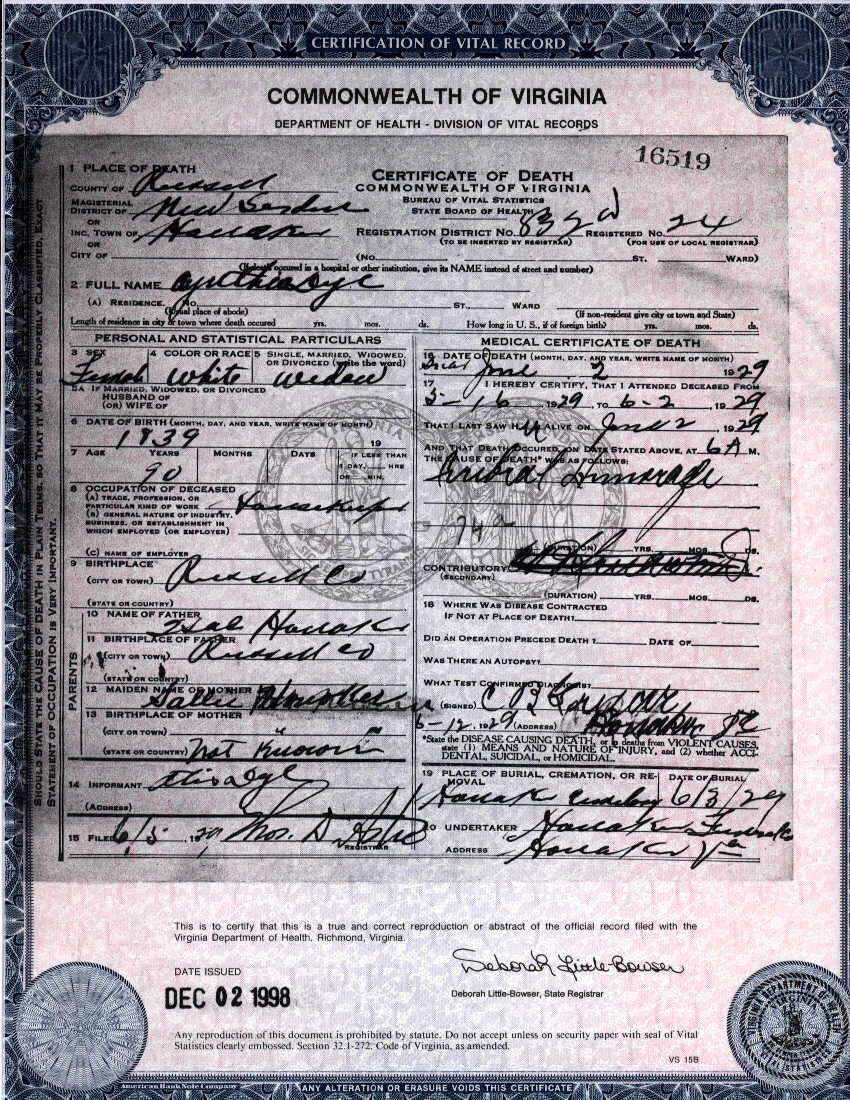 CERTIFICATION OF VITAL RECORD
COMMONWEALTH OF VIRGINIA
DEPARTMENT OF HEALTH - DIVISION OF VITAL RECORDS
16519
1 PLACE OF DEATH
COUNTY OF Russell
CERTIFICATE OF DEATH
COMMONWEALTH OF VIRGINIA
MAGISTERIAL DISTRICT OF New Garden
BUREAU OF VITAL STATISTICS
STATE BOARD OF HEALTH
OR
INC. TOWN OF Honaker
REGISTRATION DISTRICT NO. REGISTERED NO. 24
(TO BE INSERTED BY REGISTRAR) (FOR USE OF LOCAL REGISTRAR)
OR
CITY OF (NO. ST. WARD)
(If death occured in a hospital or other institution, give its NAME instead of street and number)
2 FULL NAME Cynthia Dye
(A) RESIDENCE. No. ST., WARD
(Usual place of abode) (If non-resident give city or town and State)
Length of residence in city or town where death occured yrs. mos. ds. How long in U. S., if of foreign birth? yrs. mos. ds.
PERSONAL AND STATISTICAL PARTICULARS
3 SEX 4 COLOR OR RACE 5 SINGLE, MARRIED, WIDOWED, OR DIVORCED (write the word)
Femal White Widow
5A IF MARRIED, WIDOWED, OR DIVORCED
HUSBAND OF
(OR) WIFE OF
6 DATE OF BIRTH (MONTH, DAY, AND YEAR, WRITE NAME OF MONTH)
1839 19
7 AGE YEARS MONTHS DAYS IF LESS THAN
1 DAY, HRS
OR MIN.
90
8 OCCUPATION OF DECEASED
(A) TRADE, PROFESSION, OR
PARTICULAR KIND OF WORK Housekeeper
(B) GENERAL NATURE OF INDUSTRY,
BUSINESS, OR ESTABLISHMENT IN
WHICH EMPLOYED (OR EMPLOYER)
(C) NAME OF EMPLOYER
9 BIRTHPLACE
(CITY OR TOWN) Russell Co
(STATE OR COUNTRY)
PARENTS
10 NAME OF FATHER
Honaker
11 BIRTHPLACE OF FATHER
(CITY OR TOWN) Russell Co
(STATE OR COUNTRY)
12 MAIDEN NAME OF MOTHER
Sallie
13 BIRTHPLACE OF MOTHER
(CITY OR TOWN)
(STATE OR COUNTRY) Not Known
14 INFORMANT Dye
(ADDRESS)
15 FILED 6/5, 1929 Thos. D.
REGISTRAR
MEDICAL CERTIFICATE OF DEATH
16 DATE OF DEATH (MONTH, DAY, AND YEAR, WRITE NAME OF MONTH)
June 2 1929
17 I HEREBY CERTIFY, THAT I ATTENDED DECEASED FROM
5-16, 1929, TO 6-2, 1929
THAT I LAST SAW H ALIVE ON June 2, 1929
AND THAT DEATH OCCURED, ON DATE STATED ABOVE, AT 6A M.
THE CAUSE OF DEATH* WAS AS FOLLOWS:
74a
(DURATION) YRS. MOS. DS.
CONTRIBUTORY
(SECONDARY)
(DURATION) YRS. MOS. DS.
18 WHERE WAS DISEASE CONTRACTED
IF NOT AT PLACE OF DEATH?
DID AN OPERATION PRECEDE DEATH? DATE OF
WAS THERE AN AUTOPSY?
WHAT TEST CONFIRMED DIAGNOSIS?
(SIGNED) C B
6-12, 1929 (ADDRESS) Honaker Va
*State the DISEASE CAUSING DEATH, or in deaths from VIOLENT CAUSES, state (1) MEANS AND NATURE OF INJURY, and (2) whether ACCIDENTAL, SUICIDAL, or HOMICIDAL.
19 PLACE OF BURIAL, CREMATION, OR REMOVAL DATE OF BURIAL
Honaker Cemetery 6/3/29
20 UNDERTAKER Honaker
ADDRESS Honaker Va
SHOULD STATE THE CAUSE OF DEATH IN PLAIN TERMS, SO THAT IT MAY BE PROPERLY CLASSIFIED. EXACT
STATEMENT OF OCCUPATION IS VERY IMPORTANT.
This is to certify that this is a true and correct reproduction or abstract of the official record filed with the
Virginia Department of Health, Richmond, Virginia.
DATE ISSUED
DEC 02 1998
Deborah Little-Bowser
Deborah Little-Bowser, State Registrar
Any reproduction of this document is prohibited by statute. Do not accept unless on security paper with seal of Vital
Statistics clearly embossed. Section 32.1-272. Code of Virginia, as amended.
VS 15B
American Bank Note Company
ANY ALTERATION OR ERASURE VOIDS THIS CERTIFICATE